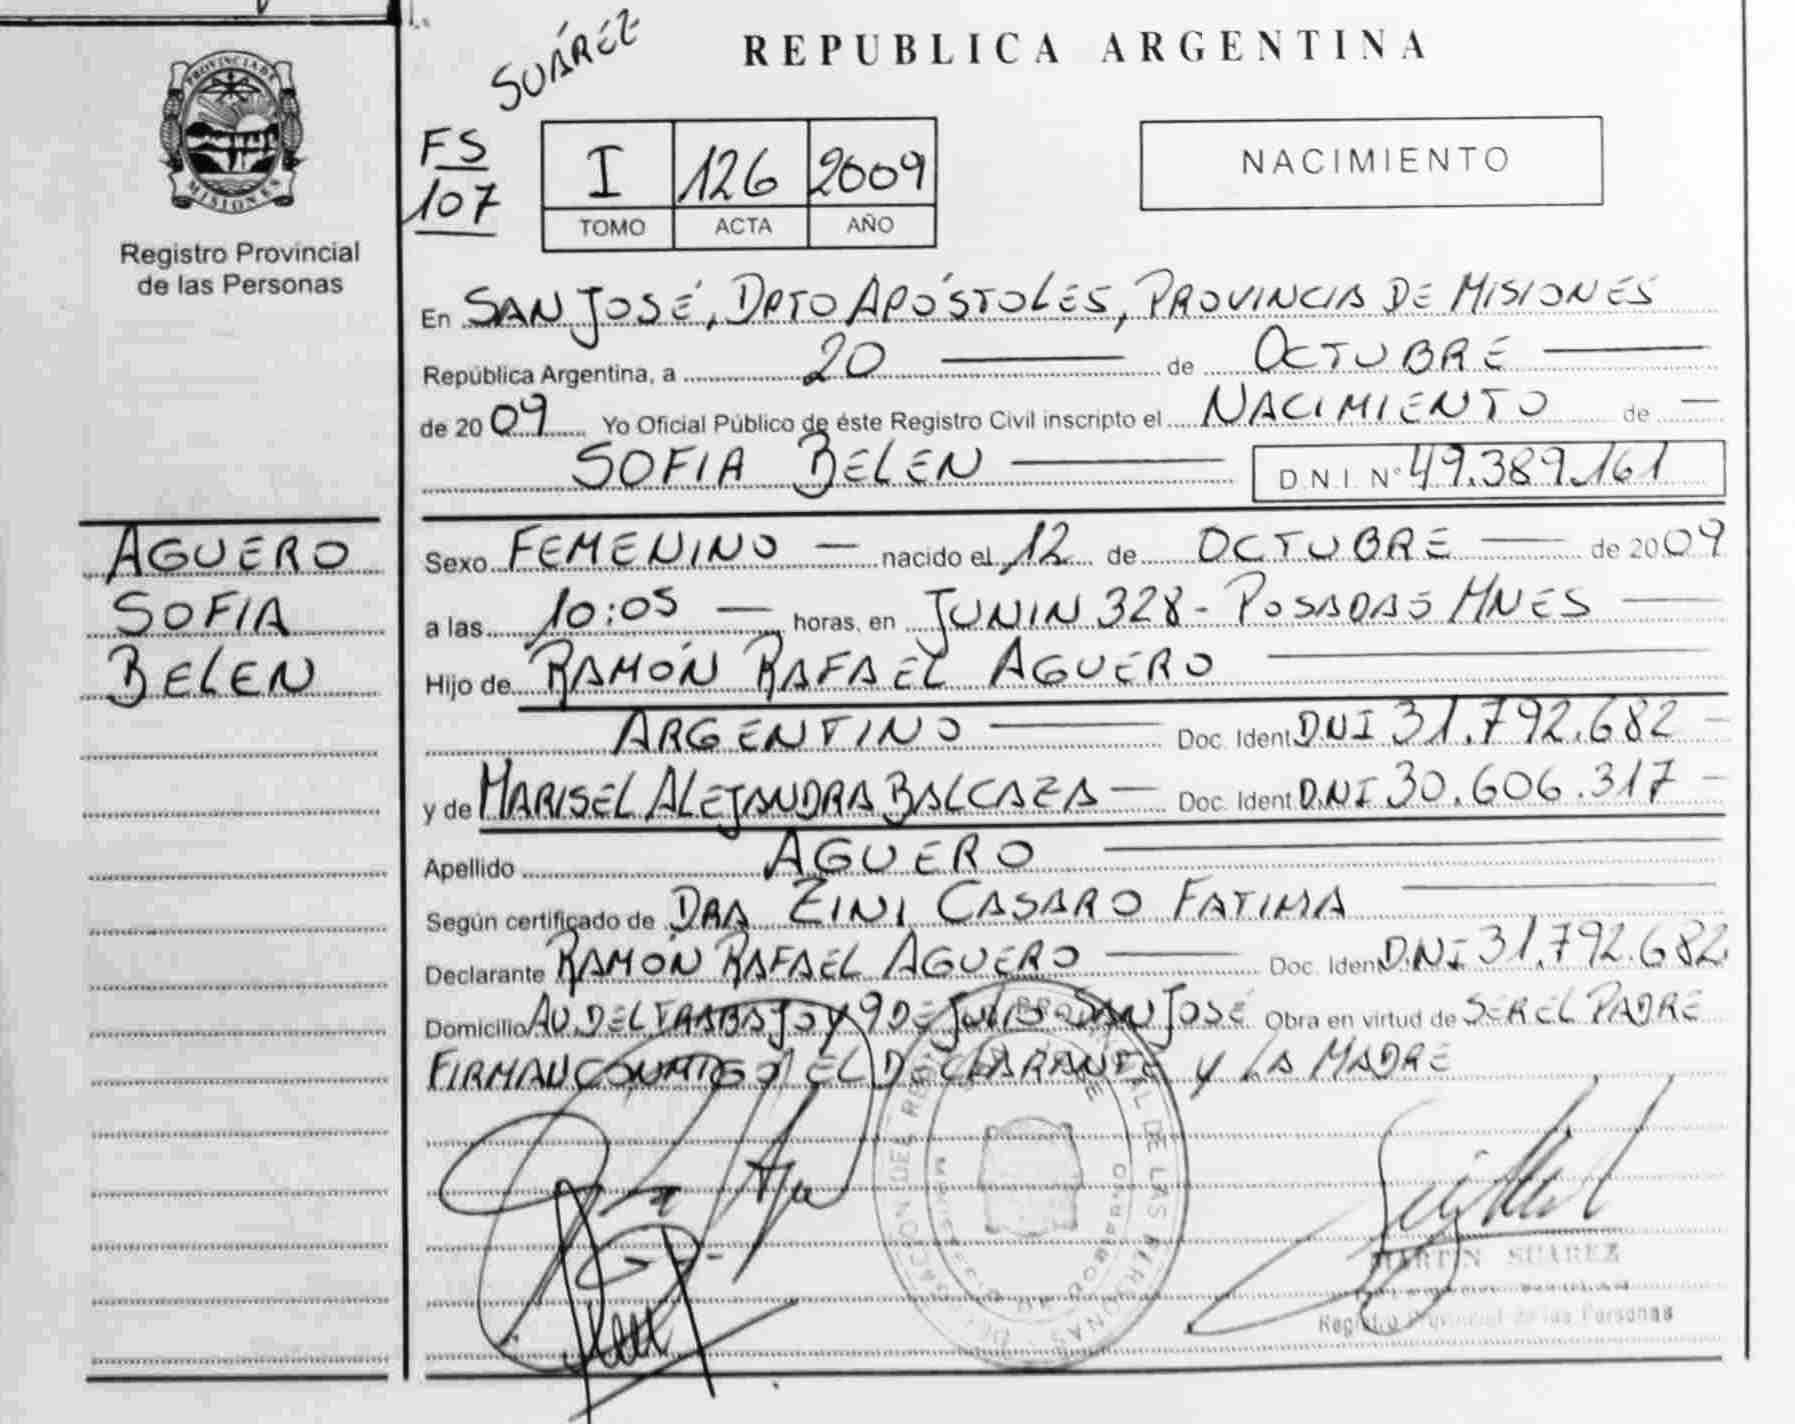 SUÁREZ
REPUBLICA ARGENTINA
PROVINCIA DE
MISIONES
Registro Provincial
de las Personas
FS
107
I 126 2009
TOMO ACTA AÑO
NACIMIENTO
En SAN JOSÉ, DPTO APÓSTOLES, PROVINCIA DE MISIONES
República Argentina, a 20 de OCTUBRE
de 2009 Yo Oficial Público de éste Registro Civil inscripto el NACIMIENTO de
SOFIA BELEN D.N.I. N° 49.389.161
AGUERO
SOFIA
BELEN
Sexo FEMENINO nacido el 12 de OCTUBRE de 2009
a las 10:05 horas, en JUNIN 328 - POSADAS MNES
Hijo de RAMÓN RAFAEL AGUERO
ARGENTINO Doc. Ident DNI 31.792.682
y de MARISEL ALEJANDRA BALCAZA Doc. Ident DNI 30.606.317
Apellido AGUERO
Según certificado de DRA ZINI CASARO FATIMA
Declarante RAMÓN RAFAEL AGUERO Doc. Iden D.N.I 31.792.682
Domicilio AV. DEL TRABAJO Y 9 DE JULIO SAN JOSÉ Obra en virtud de SER EL PADRE
FIRMAN CONMIGO EL DECLARANTE Y LA MADRE
MARTIN SUAREZ
Registro Provincial de las Personas